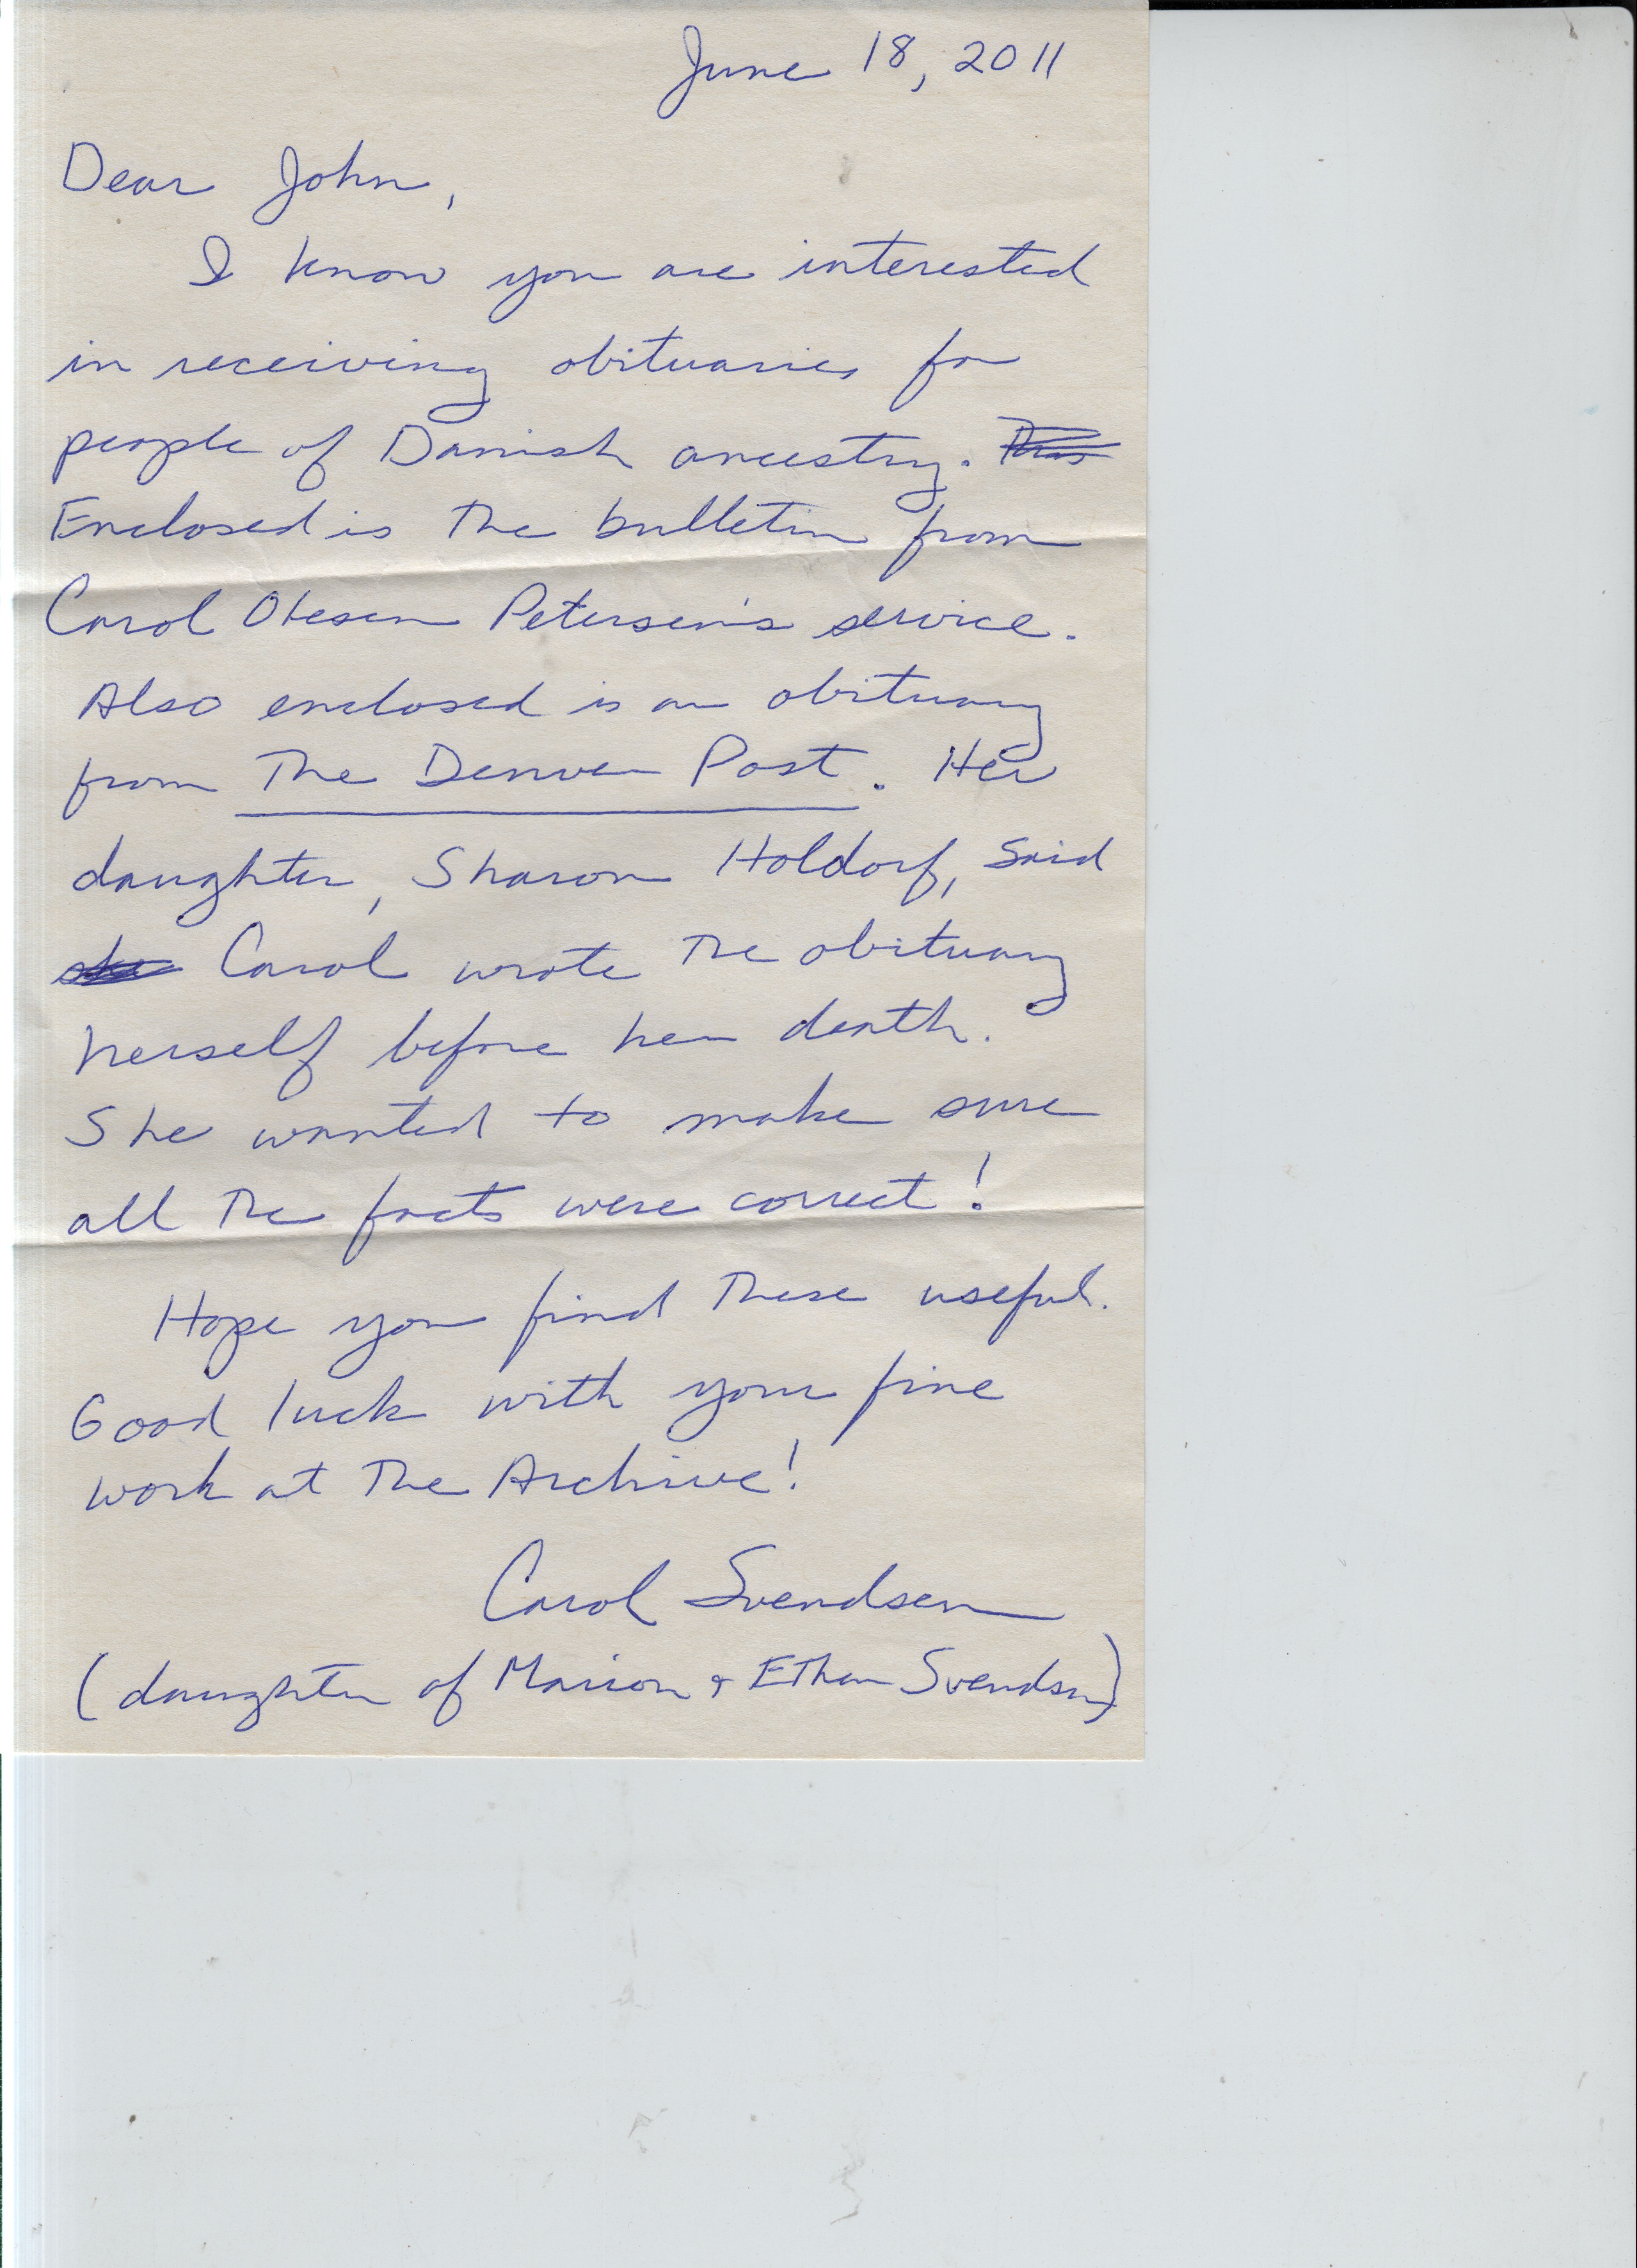 June 18, 2011
Dear John,
I know you are interested
in receiving obituaries for
people of Danish ancestry.
Enclosed is the bulletin from
Carol Olesen Petersen's service.
Also enclosed is an obituary
from The Denver Post. Her
daughter, Sharon Holdorf, said
she Carol wrote the obituary
herself before her death.
She wanted to make sure
all the facts were correct!
Hope you find these useful.
Good luck with your fine
work at the Archive!
Carol Svendsen
(daughter of Marion & Ethan Svendsen)